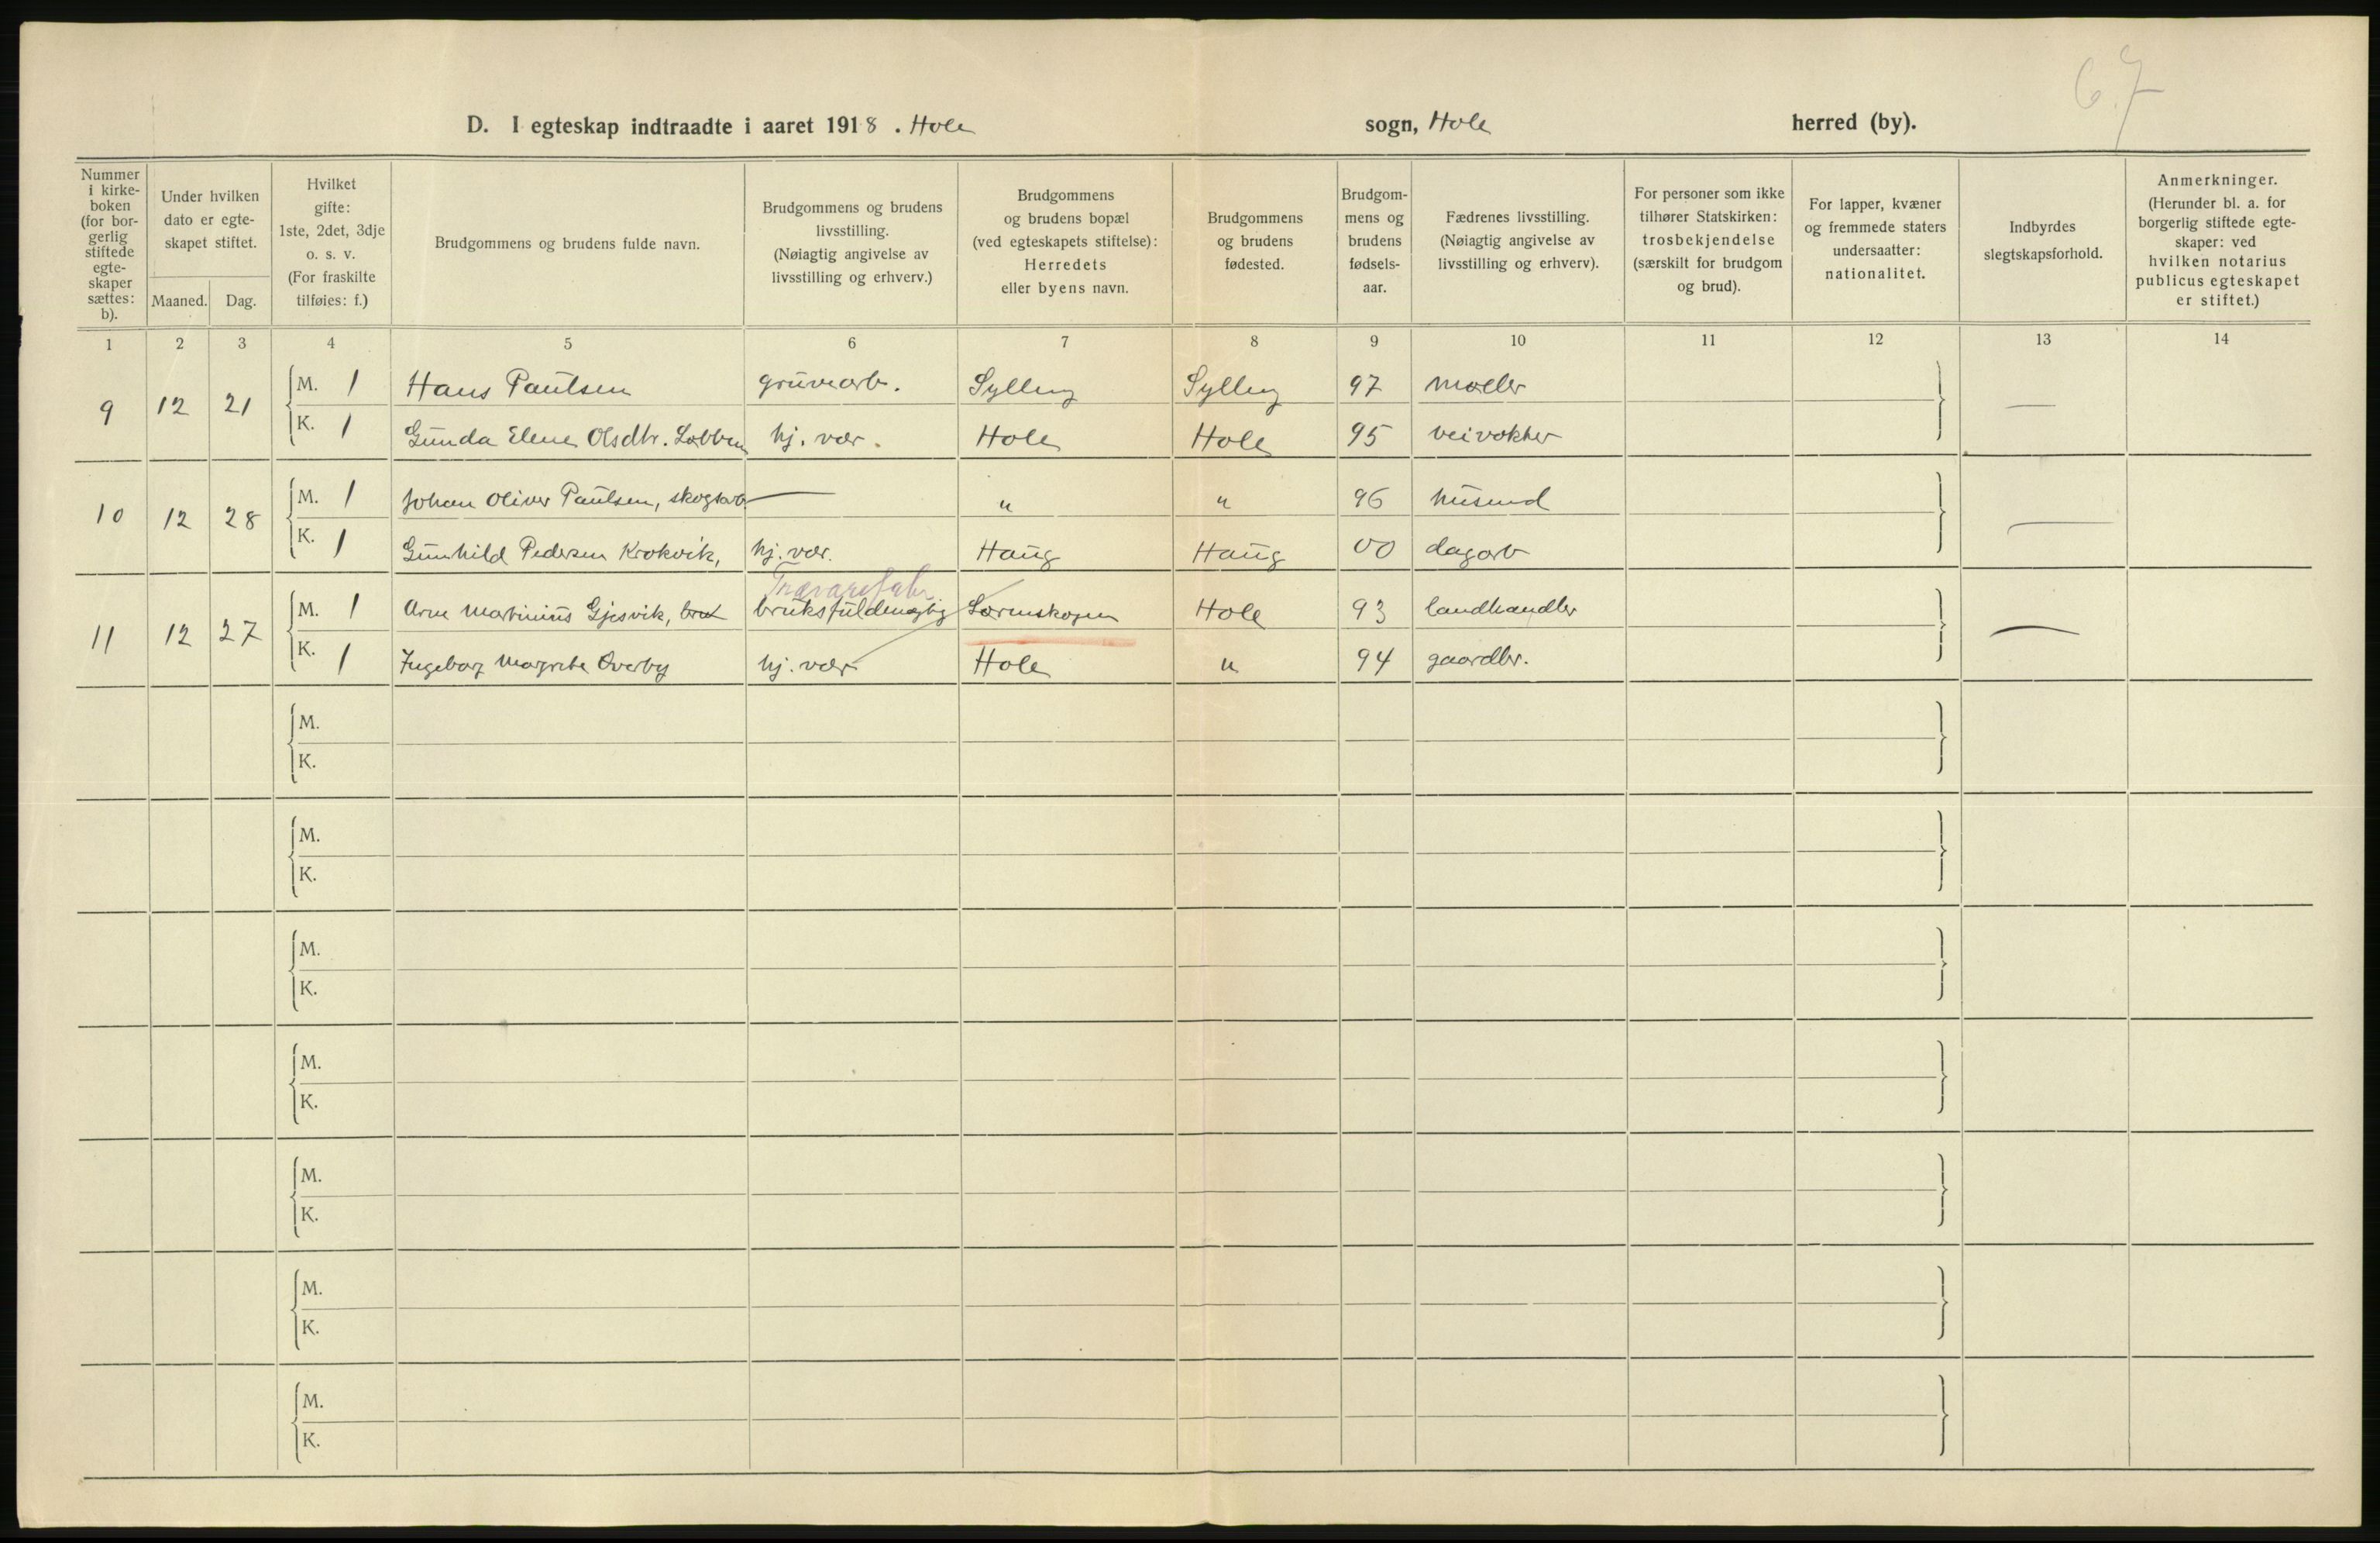 67
D. I egteskap indtraadte i aaret 1918. Hole sogn, Hole herred (by).
Nummer i kirkeboken (for borgerlig stiftede egteskaper sættes: b).
Under hvilken dato er egteskapet stiftet.
Maaned. Dag.
Hvilket gifte: 1ste, 2det, 3dje o. s. v. (For fraskilte tilføies: f.)
Brudgommens og brudens fulde navn.
Brudgommens og brudens livsstilling. (Nøiagtig angivelse av livsstilling og erhverv.)
Brudgommens og brudens bopæl (ved egteskapets stiftelse): Herredets eller byens navn.
Brudgommens og brudens fødested.
Brudgommens og brudens fødselsaar.
Fædrenes livsstilling. (Nøiagtig angivelse av livsstilling og erhverv).
For personer som ikke tilhører Statskirken: trosbekjendelse (særskilt for brudgom og brud).
For lapper, kvæner og fremmede staters undersaatter: nationalitet.
Indbyrdes slegtskapsforhold.
Anmerkninger. (Herunder bl. a. for borgerlig stiftede egteskaper: ved hvilken notarius publicus egteskapet er stiftet.)
1 2 3 4 5 6 7 8 9 10 11 12 13 14
9 12 21 M. 1 Hans Paulsen gruvearb. Sylling Sylling 97 møller —
K. 1 Gunda Elene Olsdtr. Løbben hj. vær. Hole Hole 95 veivokter
10 12 28 M. 1 Johan Oliver Paulsen, skogsarb. — " " 96 husmd —
K. 1 Gunhild Pedersen Krokvik, hj. vær. Haug Haug 00 dagarb
Trævarefabr.
11 12 27 M. 1 Arne Martinius Gjesvik, bru bruksfuldmægtig Lørenskogen Hole 93 landhandler —
K. 1 Ingeborg Margrethe Overby hj. vær Hole " 94 gaardbr.
M.
K.
M.
K.
M.
K.
M.
K.
M.
K.
M.
K.
M.
K.